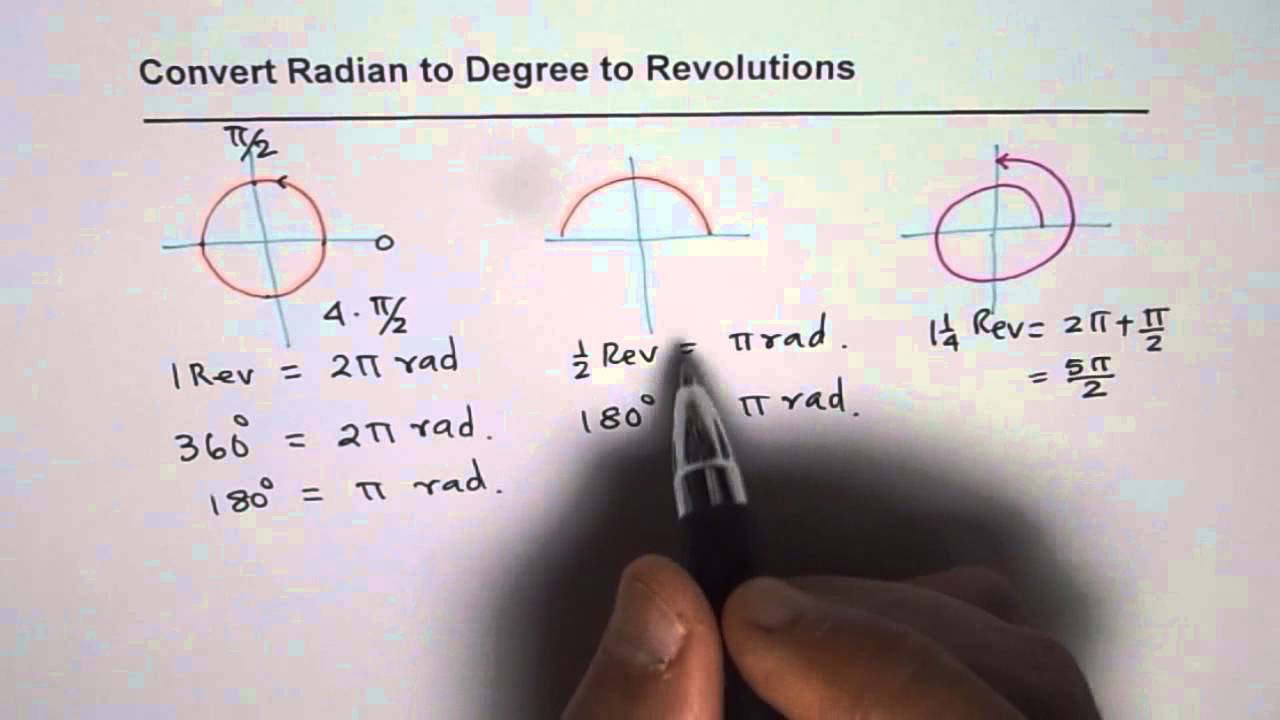 Convert Radian to Degree to Revolutions
π/2
0
4 · π/2
1 Rev = 2π rad
360° = 2π rad.
180° = π rad.
½ Rev = π rad.
180° π rad.
1¼ Rev = 2π + π/2
= 5π/2